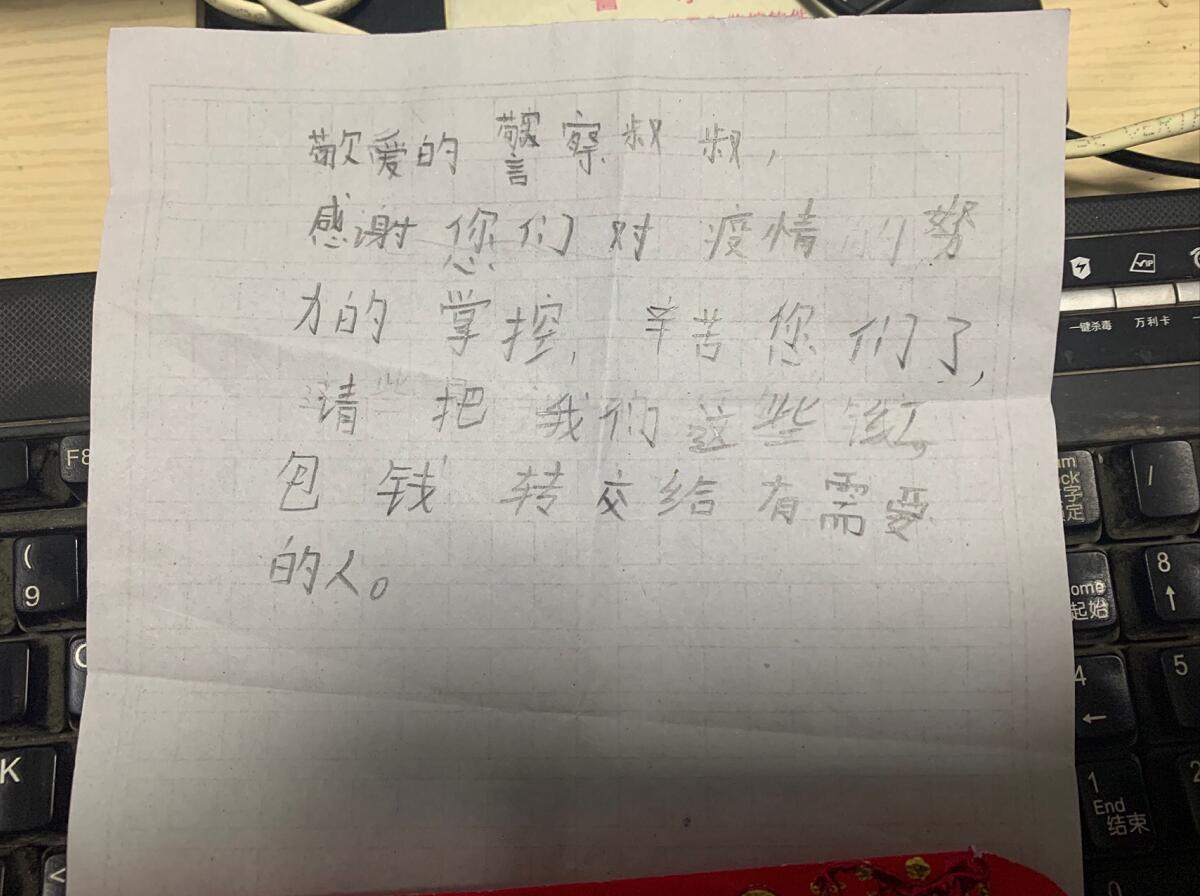 敬爱的警察叔叔，
感谢您们对疫情的努
力的掌控，辛苦您们了，
请把我们这些红
包钱转交给有需要
的人。
一键杀毒 万利卡
VIP
F8
(
9
K
<
/
8
↑
起始
4
←
5
1
End
结束
2